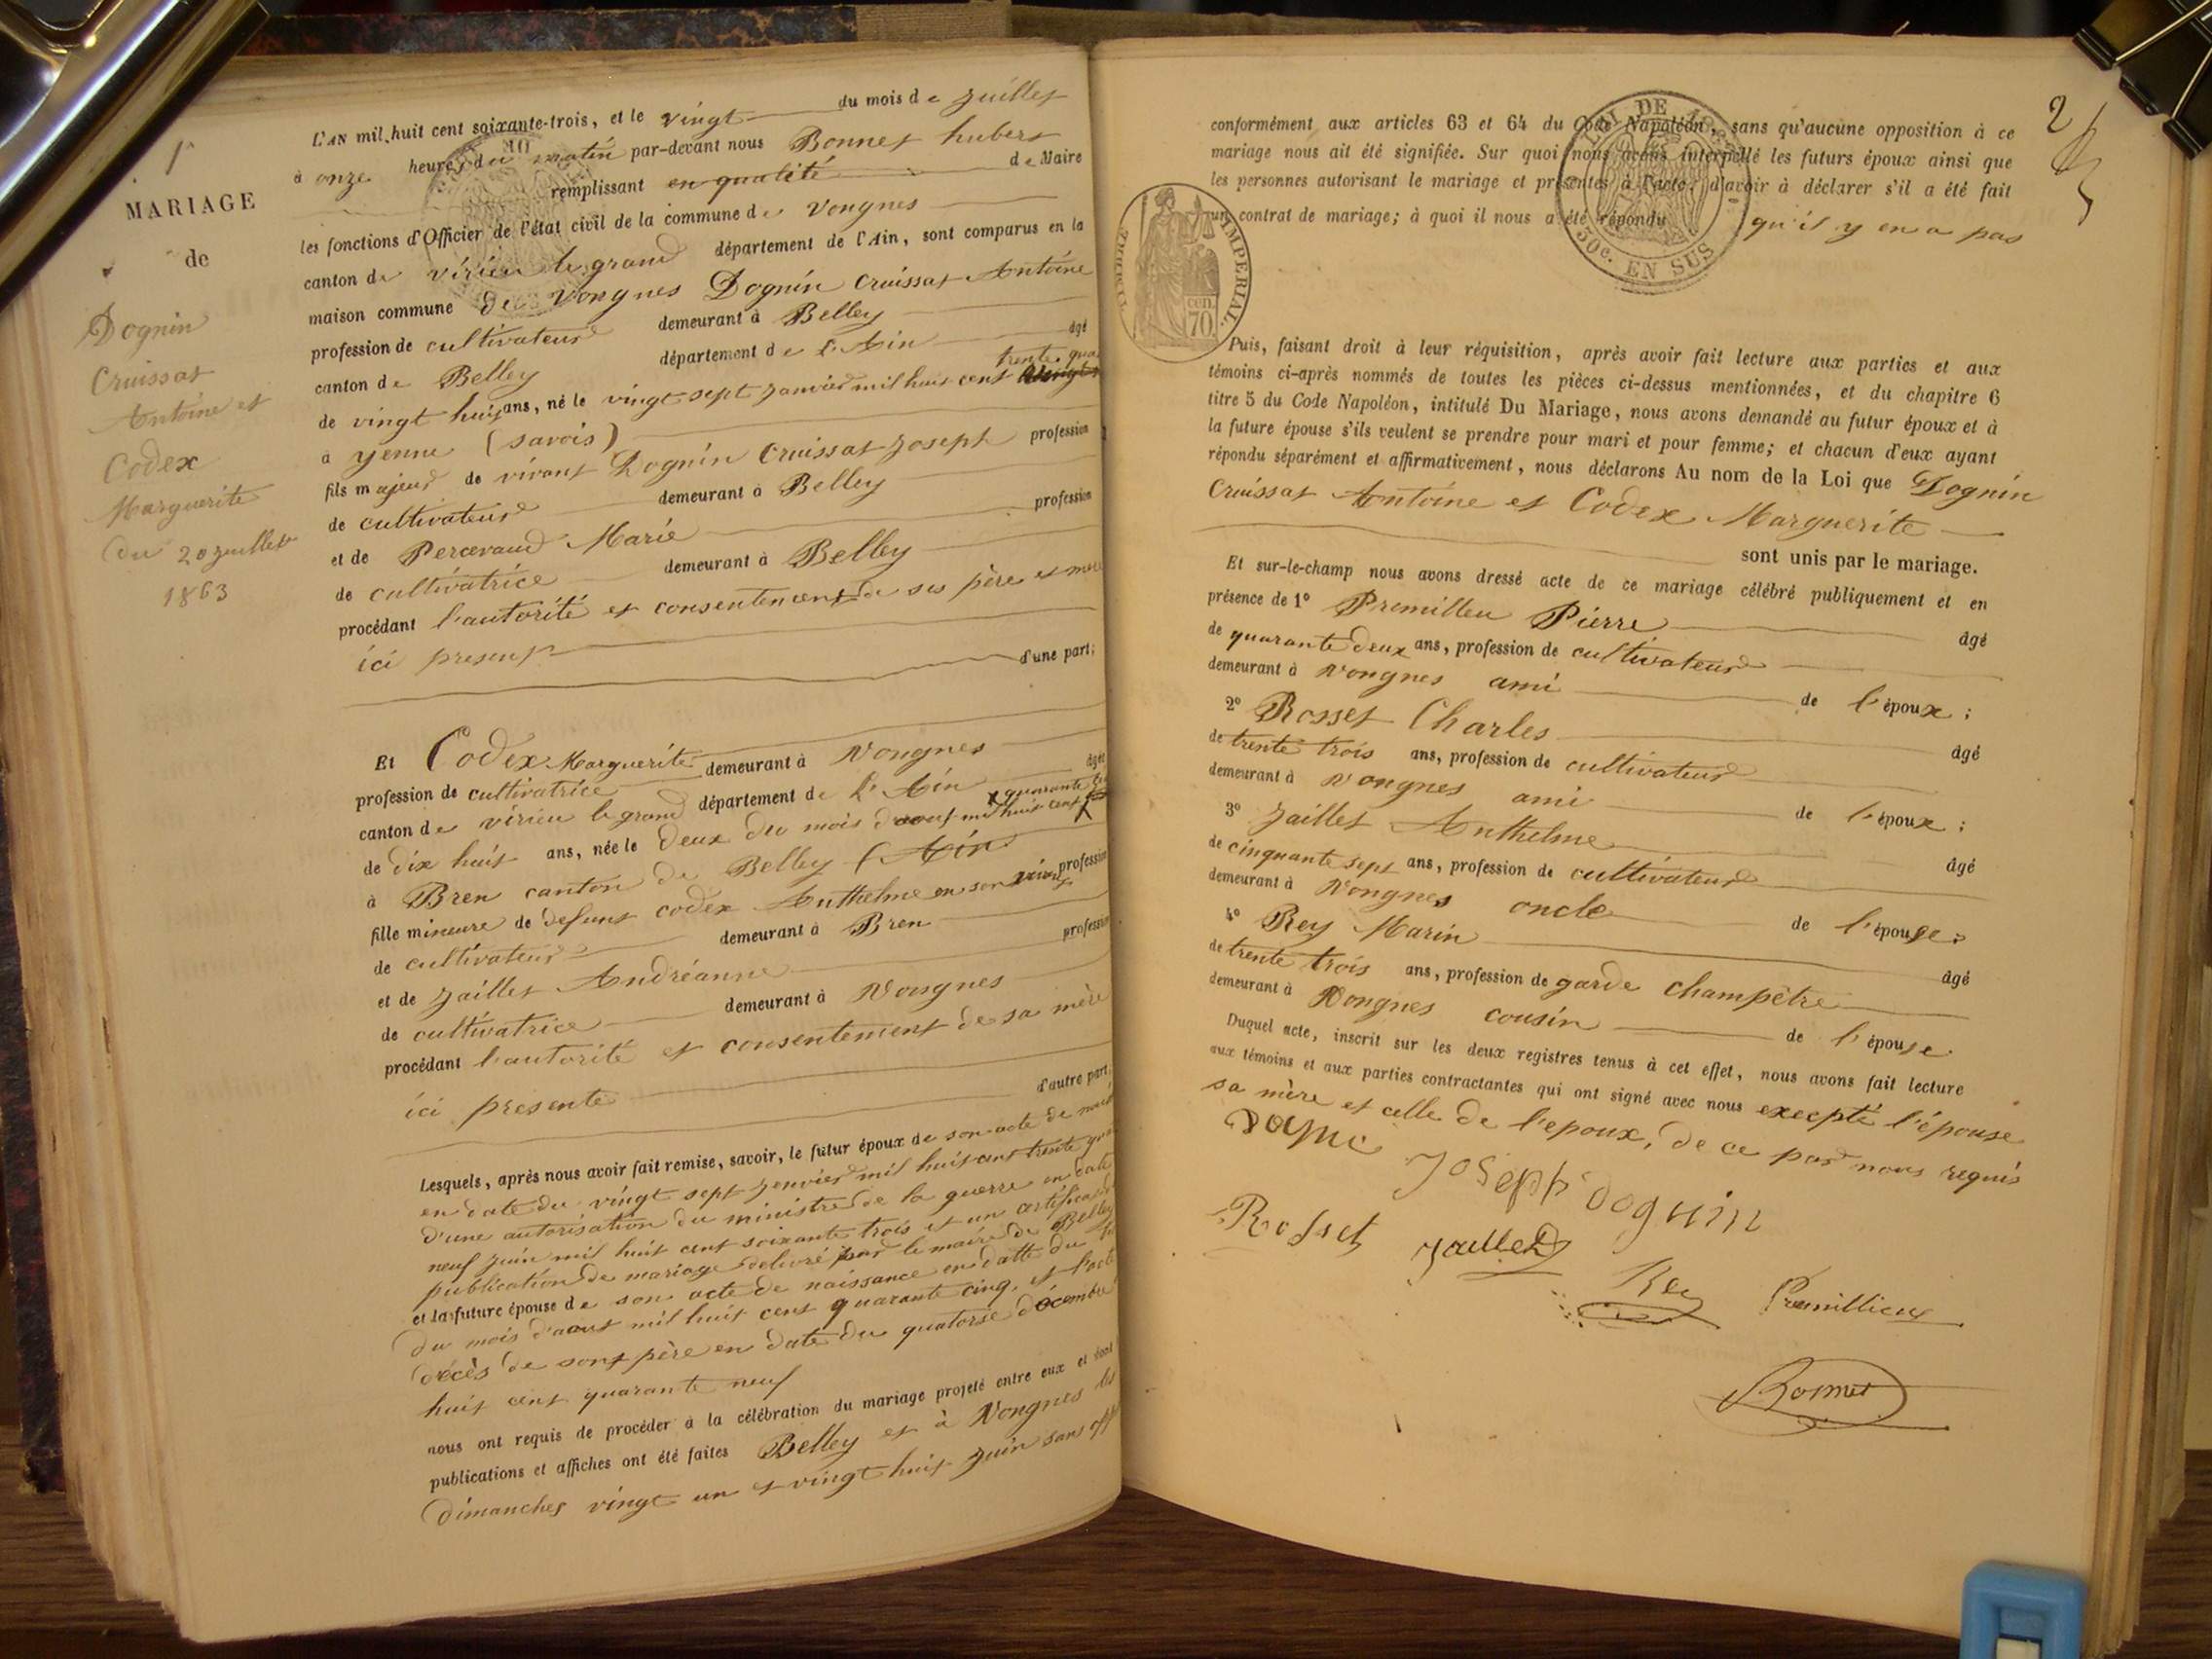 1
MARIAGE
de
Dognin
Cruissat
Antoine et
Codex
Marguerite
du 20 juillet
1863
L'AN mil huit cent soixante-trois, et le vingt du mois de juillet
à onze heures du matin par-devant nous Bonnet hubert
remplissant en qualité de Maire
les fonctions d'Officier de l'état civil de la commune de Vongnes
canton de virieu le grand département de l'Ain, sont comparus en la
maison commune de Vongnes Dognin Cruissat Antoine
profession de cultivateur demeurant à Belley
canton de Belley département de l'Ain âgé
de vingt huit ans, né le vingt sept janvier mil huit cent trente qua
à yenne (savois)
fils majeur de vivant Dognin Cruissat Joseph profession
de cultivateur demeurant à Belley
et de Percevaud Marie profession
de cultivatrice demeurant à Belley
procédant l'autorité et consentement de ses père et mère
ici present
d'une part;
Et Codex Marguerite demeurant à Vongnes
profession de cultivatrice âgée
canton de virieu le grand département de l'Ain
de dix huit ans, née le deux du mois d'aout mil huit cent quarante
à Bren canton de Belley (Ain)
fille mineure de defunt codex Anthelme en son vivant profession
de cultivateur demeurant à Bren
et de Jaillet Andréanne profession
de cultivatrice demeurant à Vongnes
procédant l'autorité et consentement de sa mère
ici presente
d'autre part;
Lesquels, après nous avoir fait remise, savoir, le futur époux de son acte de
en date du vingt sept janvier mil huit cent trente
d'une autorisation du ministre de la guerre en date
neuf juin mil huit cent soixante trois et un certificat
publication de mariage delivré par le maire de Belley
et la future épouse de son acte de naissance en datte du
du mois d'aout mil huit cent quarante cinq, et l'acte
décès de sont père en date du quatorse décembre
huit cent quarante neuf
nous ont requis de procéder à la célébration du mariage projeté entre eux et dont
publications et affiches ont été faites Belley et à Vongnes les
dimanches vingt un et vingt huit juin sans
2
conformément aux articles 63 et 64 du Code Napoléon, sans qu'aucune opposition à ce
mariage nous ait été signifiée. Sur quoi nous avons interpellé les futurs époux ainsi que
les personnes autorisant le mariage et présentes à l'acte, d'avoir à déclarer s'il a été fait
un contrat de mariage; à quoi il nous a été répondu qu'il y en a pas
30c. EN SUS
TIMBRE IMPERIAL.
cen.
70
Puis, faisant droit à leur réquisition, après avoir fait lecture aux parties et aux
témoins ci-après nommés de toutes les pièces ci-dessus mentionnées, et du chapitre 6
titre 5 du Code Napoléon, intitulé Du Mariage, nous avons demandé au futur époux et à
la future épouse s'ils veulent se prendre pour mari et pour femme; et chacun d'eux ayant
répondu séparément et affirmativement, nous déclarons Au nom de la Loi que Dognin
Cruissat Antoine et Codex Marguerite
sont unis par le mariage.
Et sur-le-champ nous avons dressé acte de ce mariage célébré publiquement et en
présence de 1º Premilleu Pierre âgé
de quarante deux ans, profession de cultivateur
demeurant à Vongnes ami de l'époux;
2º Rosset Charles âgé
de trente trois ans, profession de cultivateur
demeurant à Vongnes ami de l'époux;
3º Jaillet Anthelme âgé
de cinquante sept ans, profession de cultivateur
demeurant à Vongnes oncle de l'épouse;
4º Rey Marin âgé
de trente trois ans, profession de garde champêtre
demeurant à Vongnes cousin de l'épouse
Duquel acte, inscrit sur les deux registres tenus à cet effet, nous avons fait lecture
aux témoins et aux parties contractantes qui ont signé avec nous execpté l'épouse
sa mère et celle de l'epoux, de ce par nous requis
Joseph dognin
Rosset Jaillet
Rey Premillieux
Bonnet